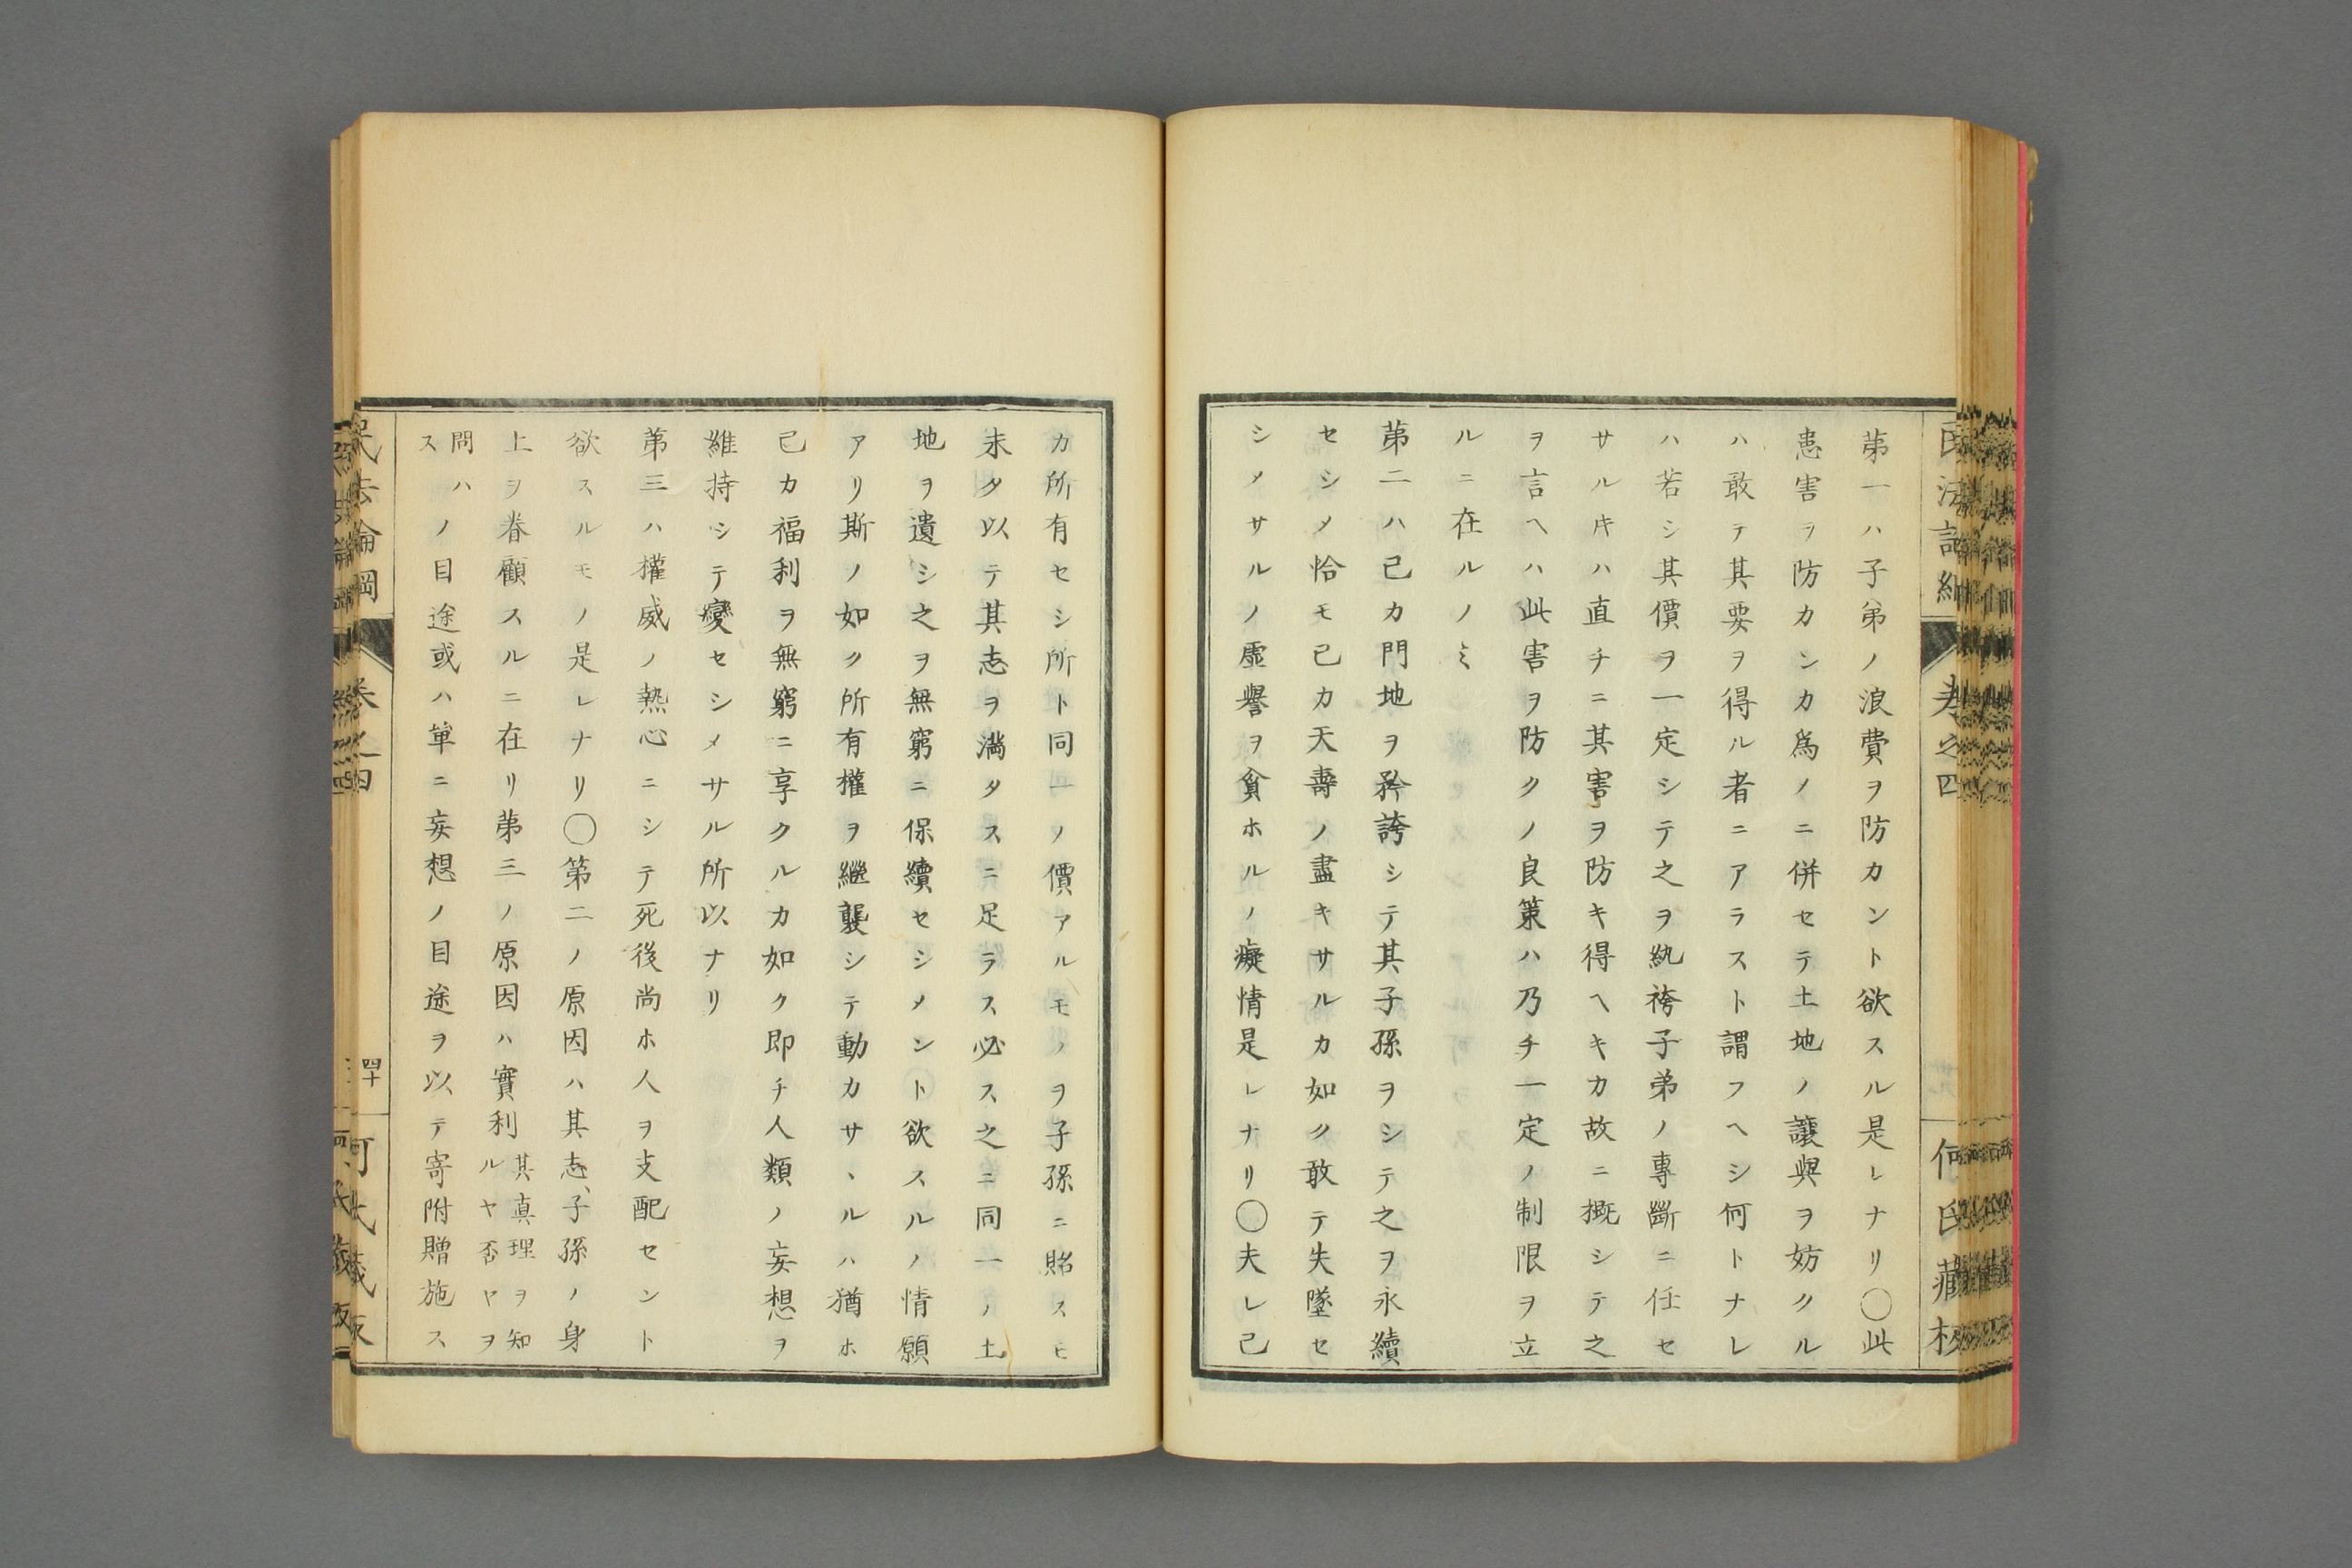 第一ハ子弟ノ浪費ヲ防カント欲スル是レナリ〇此
患害ヲ防カンカ爲ノニ併セテ土地ノ讓與ヲ妨クル
ハ敢テ其要ヲ得ル者ニアラスト謂フヘシ何トナレ
ハ若シ其價ヲ一定シテ之ヲ紈袴子弟ノ專斷ニ任セ
サルキハ直チニ其害ヲ防キ得ヘキカ故ニ概シテ之
ヲ言ヘハ此害ヲ防クノ良策ハ乃チ一定ノ制限ヲ立
ルニ在ルノミ
第二ハ己カ門地ヲ矜誇シテ其子孫ヲシテ之ヲ永續
セシメ恰モ己カ天壽ノ盡キサルカ如ク敢テ失墜セ
シメサルノ虛譽ヲ貪ホルノ癡情是レナリ〇夫レ己
カ所有セシ所ト同一ノ價アルモノヲ子孫ニ貽スモ
未タ以テ其志ヲ滿タスニ足ラス必ス之ニ同一ノ土
地ヲ遺シ之ヲ無窮ニ保續セシメント欲スルノ情願
アリ斯ノ如ク所有權ヲ繼襲シテ動カサヽルハ猶ホ
己カ福利ヲ無窮ニ享クルカ如ク即チ人類ノ妄想ヲ
維持シテ變セシメサル所以ナリ
第三ハ權威ノ熱心ニシテ死後尚ホ人ヲ支配セント
欲スルモノ是レナリ〇第二ノ原因ハ其志子孫ノ身
上ヲ眷顧スルニ在リ第三ノ原因ハ實利
其眞理ヲ知
ルヤ否ヤヲ
問ハ
ス
ノ目途或ハ單ニ妄想ノ目途ヲ以テ寄附贈施ス
民法論綱
卷之四
四十
何氏藏板